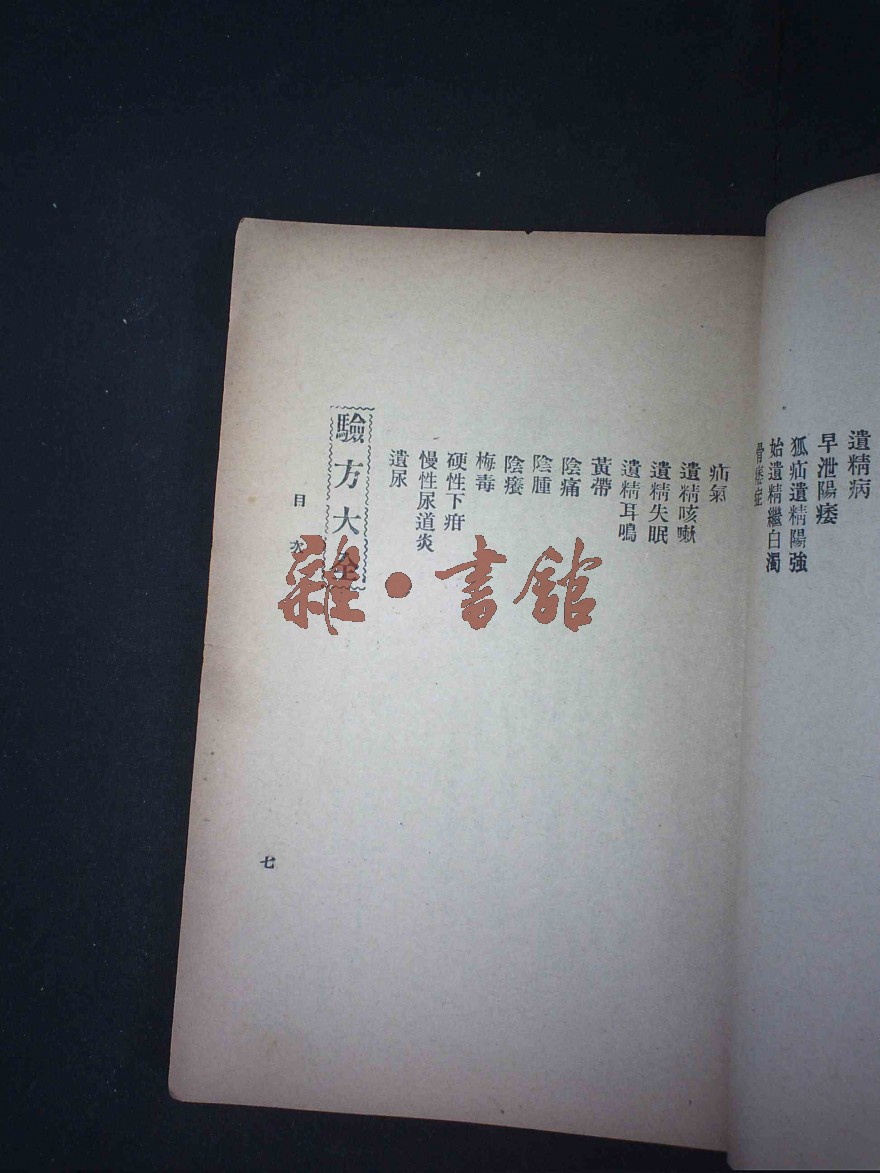 遺精病
早泄陽痿
狐疝遺精陽強
始遺精繼白濁
骨癆症
疝氣
遺精咳嗽
遺精失眠
遺精耳鳴
黃帶
陰痛
陰腫
陰癢
梅毒
硬性下疳
慢性尿道炎
遺尿
驗方大全
目次
七
雜·書館